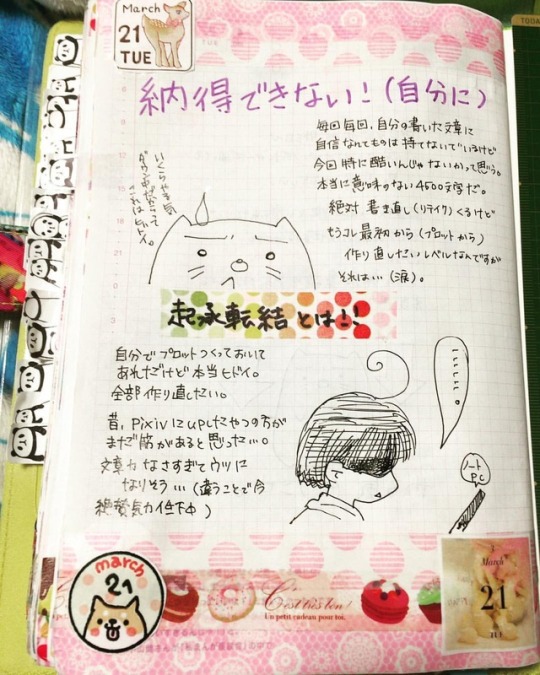 March
21
TUE
納得できない!(自分に)
毎回毎回、自分の書いた文章に
自信なんてものは持てないでいるけど
今回特に酷いんじゃないかって思う。
本当に意味のない4600文字だ。
絶対書き直し(リテイク)くるけど
もうコレ最初から(プロットから)
作り直したいレベルなんですが
それは…(涙)。
いくらやる気
ダウン中だからって
これはヒドイ。
起承転結とは!!
自分でプロットつくっておいて
あれだけど本当ヒドイ。
全部作り直したい。
昔、pixivにupしたやつの方が
まだ筋があると思ったい。
文章力なさすぎてウツに
なりそう…(違うことで今
絶賛気力低下中)
ノート
PC
march
21
C'est très bon!
Un petit cadeau pour toi.
3
March
21